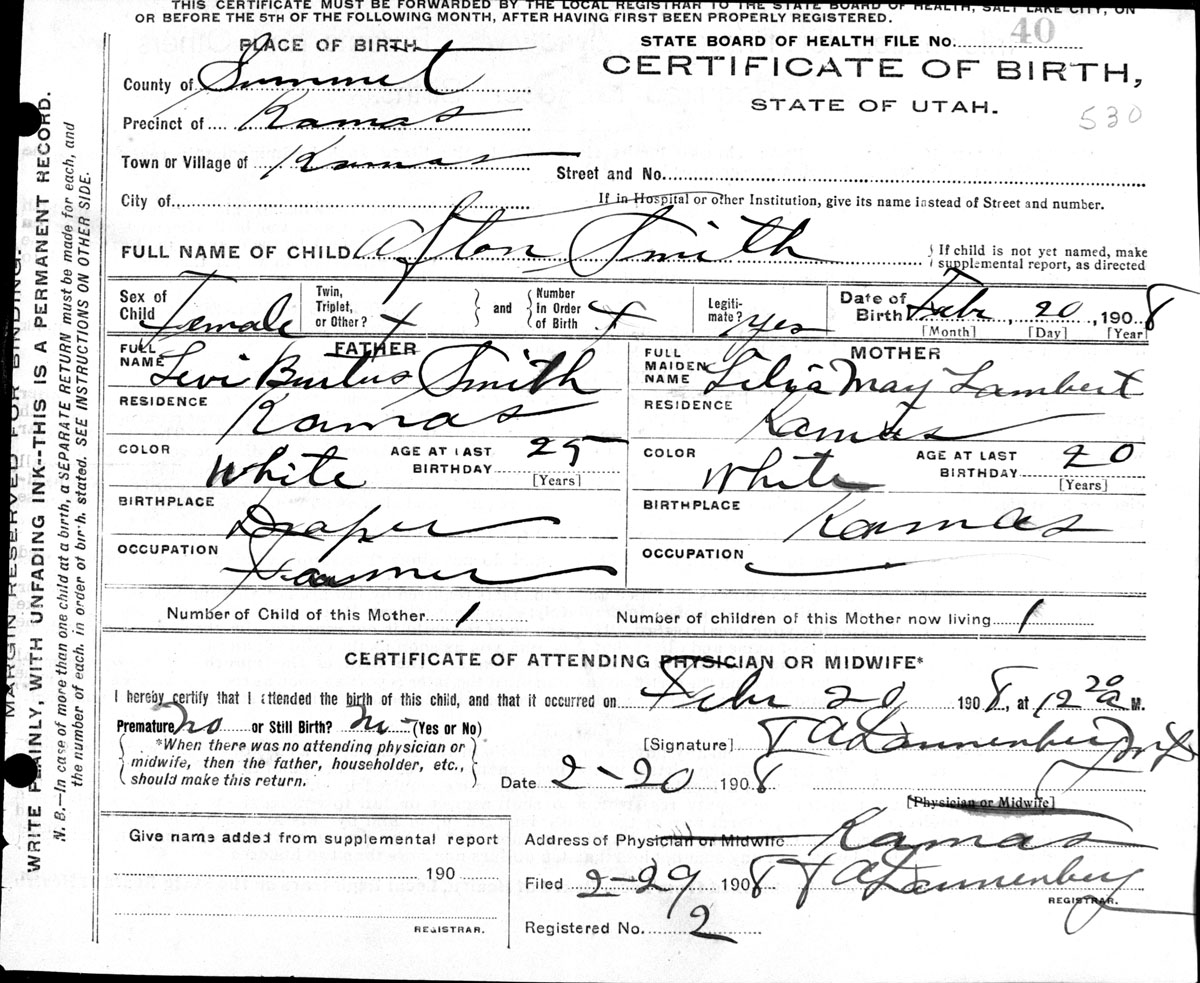 THIS CERTIFICATE MUST BE FORWARDED BY THE LOCAL REGISTRAR TO THE STATE BOARD OF HEALTH, SALT LAKE CITY, ON
OR BEFORE THE 5TH OF THE FOLLOWING MONTH, AFTER HAVING FIRST BEEN PROPERLY REGISTERED.
PLACE OF BIRTH
County of Summit
Precinct of Kamas
Town or Village of Kamas
City of
STATE BOARD OF HEALTH FILE No. 40
CERTIFICATE OF BIRTH,
STATE OF UTAH.
530
Street and No.
If in Hospital or other Institution, give its name instead of Street and number.
FULL NAME OF CHILD Afton Smith
If child is not yet named, make
supplemental report, as directed
Sex of Child Female
Twin, Triplet, or Other? +
and
Number in Order of Birth +
Legitimate? yes
Date of Birth Febr, 20, 1908
[Month] [Day] [Year]
FATHER
FULL NAME Levi Burtus Smith
RESIDENCE Kamas
COLOR White AGE AT LAST BIRTHDAY 25
[Years]
BIRTHPLACE Draper
OCCUPATION Farmer
MOTHER
FULL MAIDEN NAME May Lambert
RESIDENCE Kamas
COLOR White AGE AT LAST BIRTHDAY 20
[Years]
BIRTHPLACE Kamas
OCCUPATION
Number of Child of this Mother 1 Number of children of this Mother now living 1
CERTIFICATE OF ATTENDING PHYSICIAN OR MIDWIFE*
I hereby certify that I attended the birth of this child, and that it occurred on Febr 20 1908, at 12 20 a M.
Premature no or Still Birth? no (Yes or No)
*When there was no attending physician or
midwife, then the father, householder, etc.,
should make this return.
[Signature] T A Dannenberg MD
Date 2-20 1908
[Physician or Midwife]
Give name added from supplemental report
190
REGISTRAR.
Address of Physician or Midwife Kamas
Filed 2-29 1908 T A Dannenberg
REGISTRAR.
Registered No. 2
MARGIN RESERVED FOR BINDING.
WRITE PLAINLY, WITH UNFADING INK--THIS IS A PERMANENT RECORD.
N. B.—In case of more than one child at a birth, a SEPARATE RETURN must be made for each, and
the number of each, in order of birth, stated. SEE INSTRUCTIONS ON OTHER SIDE.